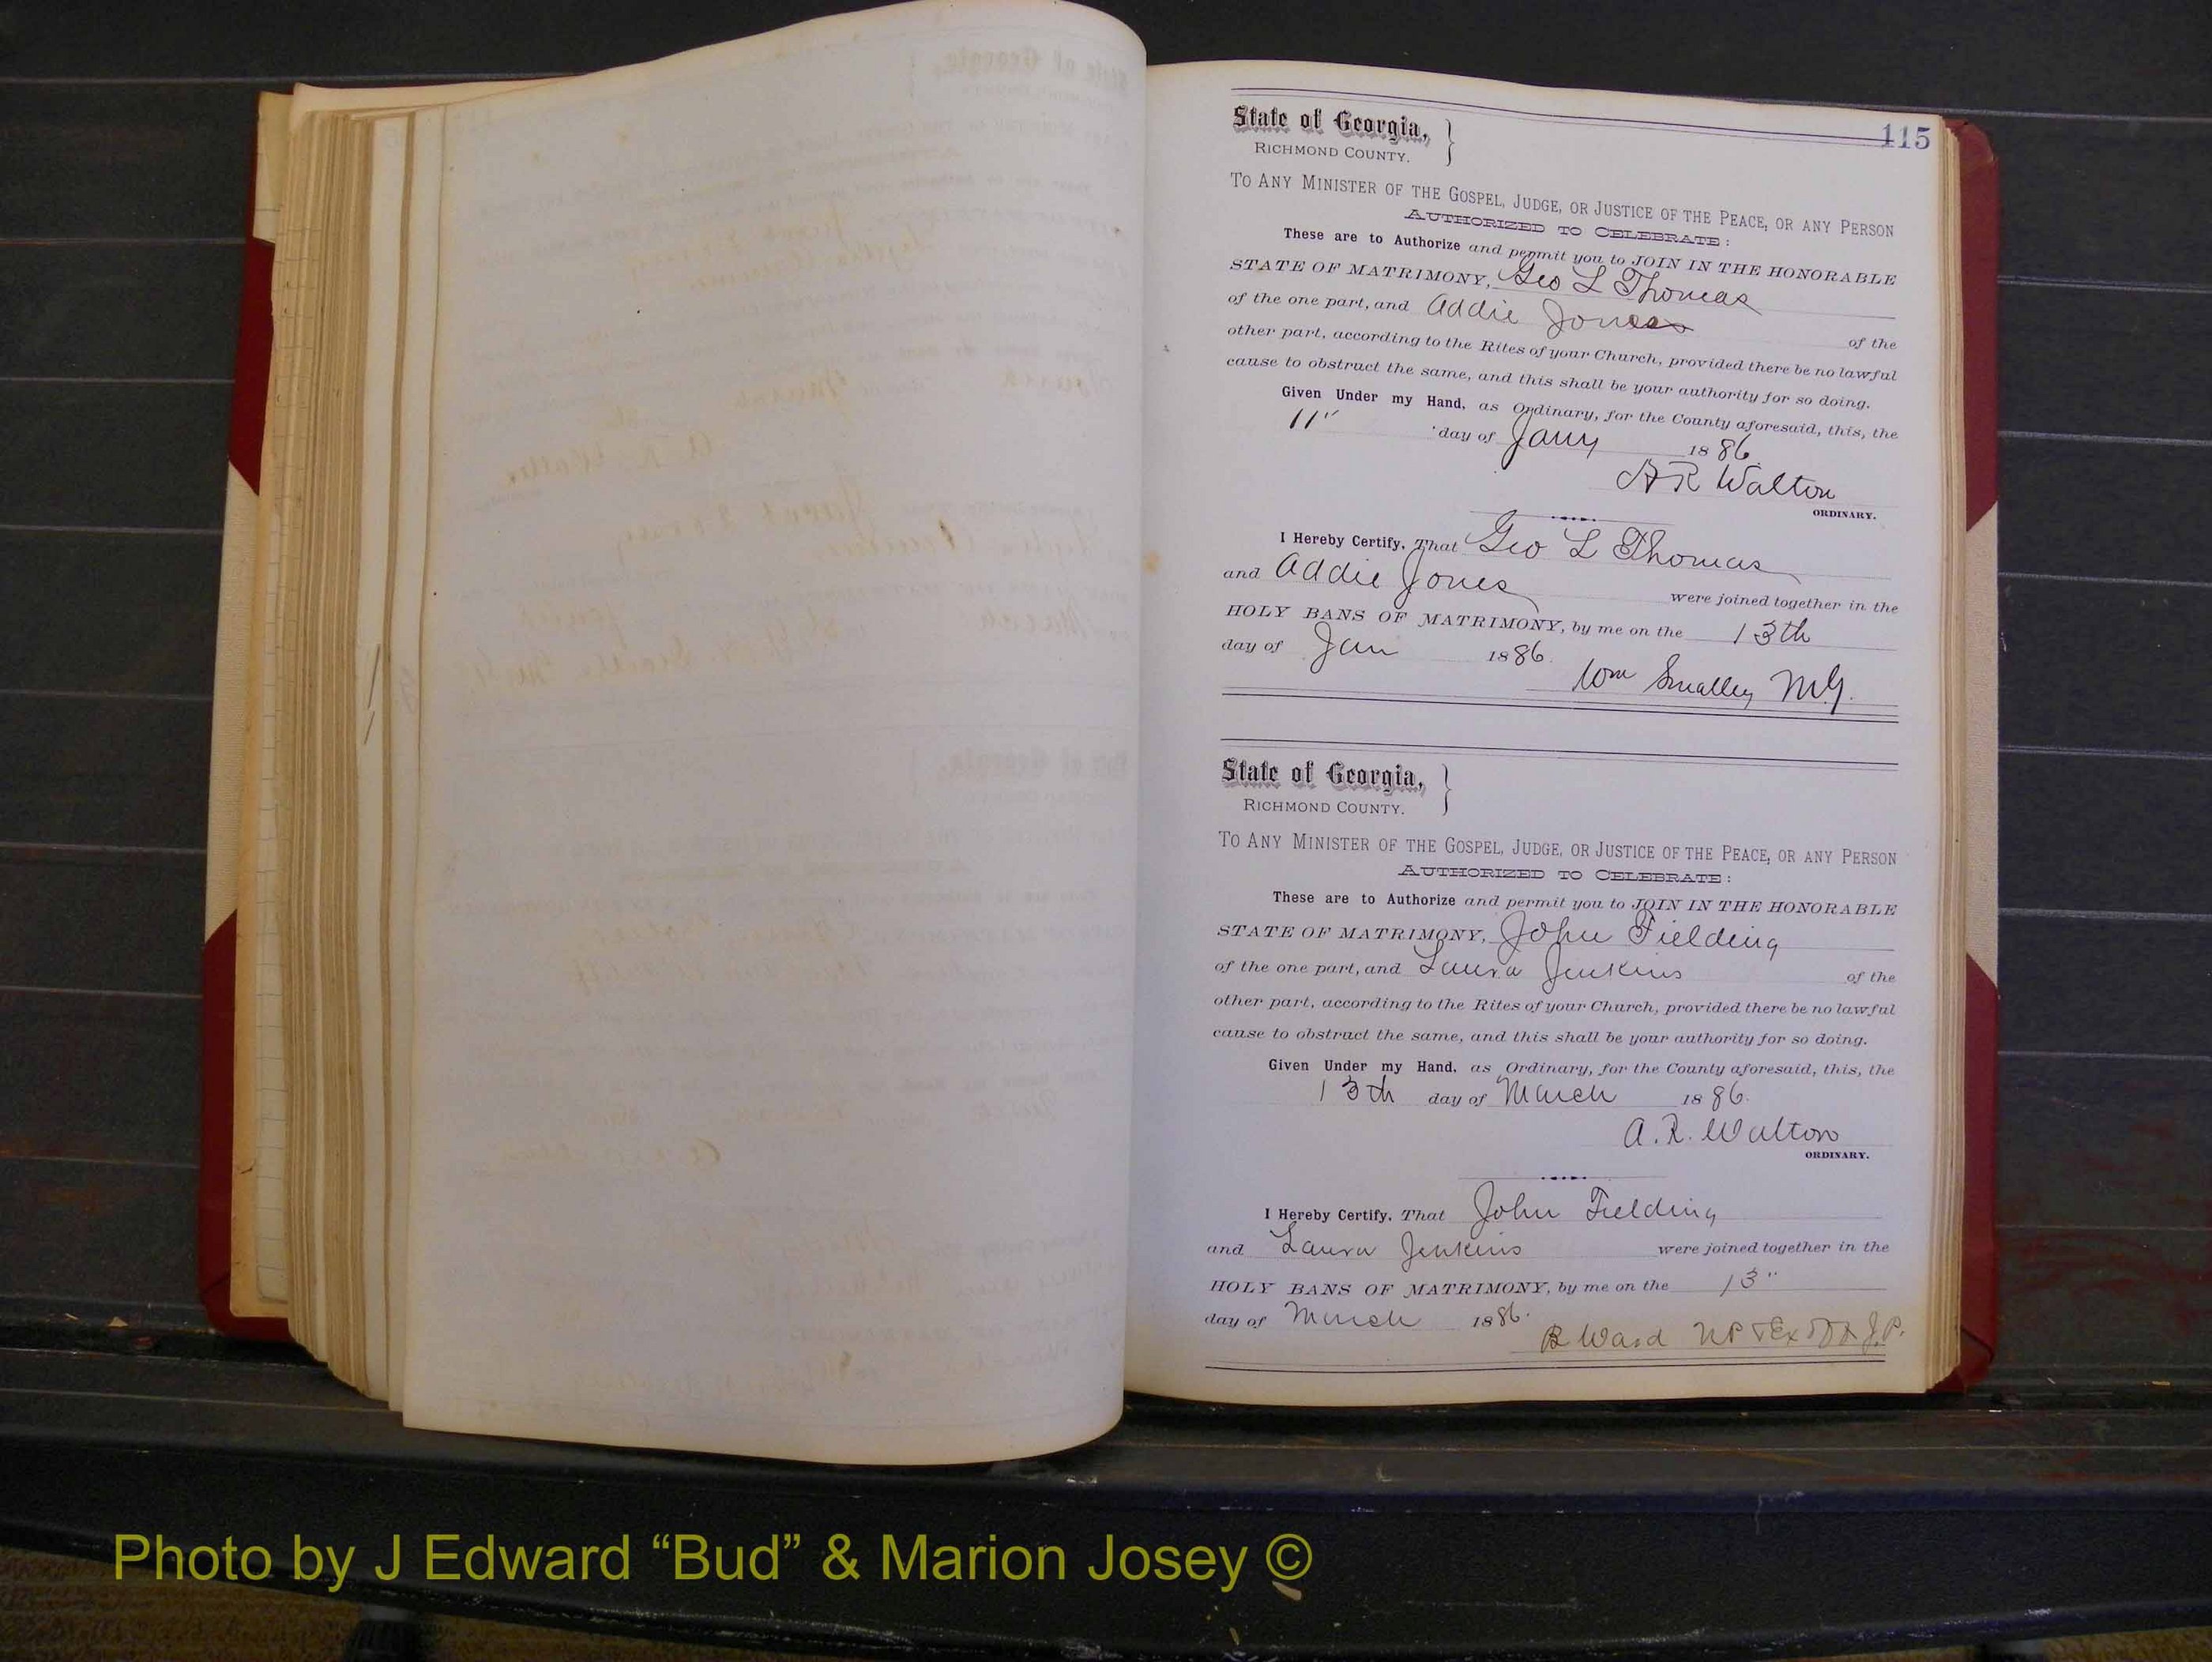 115
State of Georgia,
RICHMOND COUNTY.
TO ANY MINISTER OF THE GOSPEL, JUDGE, OR JUSTICE OF THE PEACE, OR ANY PERSON
AUTHORIZED TO CELEBRATE:
These are to Authorize and permit you to JOIN IN THE HONORABLE
STATE OF MATRIMONY, Geo L Thomas
of the one part, and Addie Jones of the
other part, according to the Rites of your Church, provided there be no lawful
cause to obstruct the same, and this shall be your authority for so doing.
Given Under my Hand, as Ordinary, for the County aforesaid, this, the
11" day of Jany 1886.
A R Walton
ORDINARY.
I Hereby Certify, That Geo L Thomas
and Addie Jones were joined together in the
HOLY BANS OF MATRIMONY, by me on the 13th
day of Jan 1886.
Wm Smalley M.G.
State of Georgia,
RICHMOND COUNTY.
TO ANY MINISTER OF THE GOSPEL, JUDGE, OR JUSTICE OF THE PEACE, OR ANY PERSON
AUTHORIZED TO CELEBRATE:
These are to Authorize and permit you to JOIN IN THE HONORABLE
STATE OF MATRIMONY, John Fielding
of the one part, and Laura Jenkins of the
other part, according to the Rites of your Church, provided there be no lawful
cause to obstruct the same, and this shall be your authority for so doing.
Given Under my Hand, as Ordinary, for the County aforesaid, this, the
13th day of March 1886.
A. R. Walton
ORDINARY.
I Hereby Certify, That John Fielding
and Laura Jenkins were joined together in the
HOLY BANS OF MATRIMONY, by me on the 13"
day of March 1886.
B Ward NP & Ex Off J.P.
Photo by J Edward “Bud” & Marion Josey ©